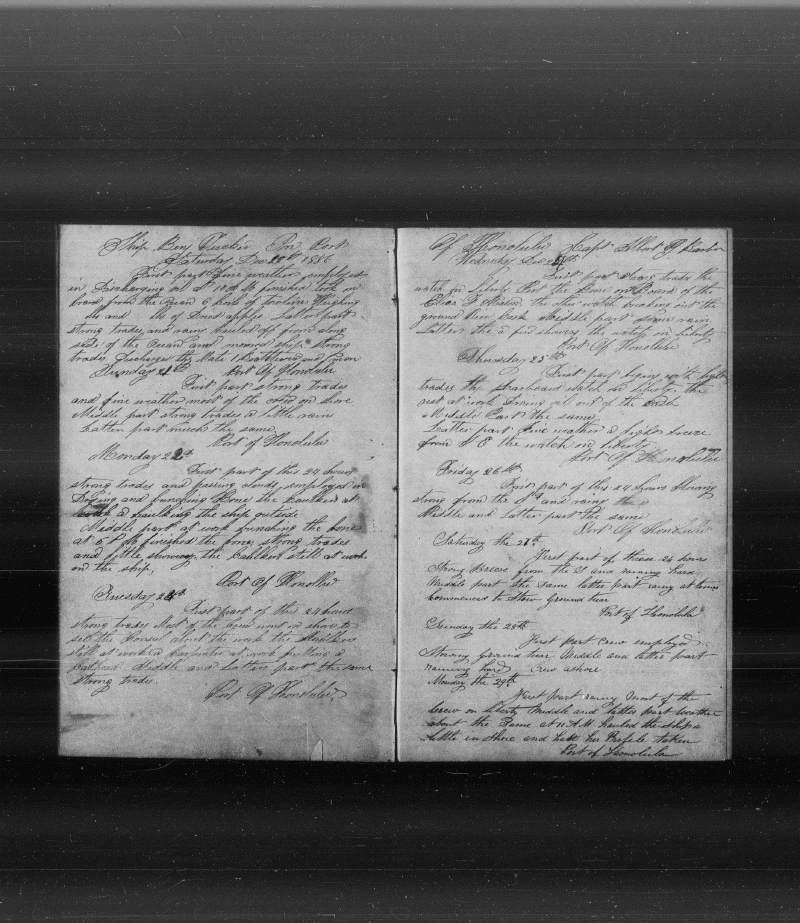 Ship Benj Tucker In Port
Saturday Dec 20th 1856
First part fine weather employed
in Discharging oil at 10 A M finished took on
board from the Ocean 6 bols of towline Weighing
lbs and lbs of Dried apples Latter part
strong trades and rains hauled off from along
side of the Ocean and moored ship strong
trades Discharged the Mate 1 Boatsteerer and 1 man
Sunday 21st Port Of Honolulu
First part strong trades
and fine weather most of the crew on shore
Middle part strong trades a little rain
Latter part much the same
Port of Honolulu
Monday 22d
First part of this 24 hours
strong trades and passing clouds, employed in
Drying and bunching Bone the caulkers at
work a caulking the ship outside
Middle part at work bunching the bone
at 5 P M finished the bone, strong trades
and little showery the caulkers still at work
on the ship,
Port Of Honollu
Tuesday 23d
First part of this 24 hours
strong trades Most of the crew went on shore to
see the Consul about the work the caulkers
still at work a carpenter at work putting a
Middle and Latter part the same
strong trades.
Port Of Honolulu
Of Honolulu Capt Albert
Wednesday Dec 24th
First part strong trades the
watch on Liberty Put the Bone on Board of the
the other watch breaking out the
ground tier Cask Middle part some rain
Latter the a few showers the watch on Liberty
Port Of Honolulu
Thursday 25th
First part begins with light
trades the starboard watch on liberty the
rest at work Driving oil out of the Cask
Middle Part the same
Latter part fine weather a light breeze
from S E the watch on liberty
Port Of Honolulu
Friday 26th
First part of this 24 hours blowing
strong from the Sd and raining
Middle and latter part the same
Port Of Honolulu
Saturday the 27th
First part of these 24 hours
Strong Breeze from the and raining hard
Middle part the Same latter part rainy at times
Commenced to Stow Ground tear
Port of Honolula
Sunday the 28th
First part Crew employed
Stowing ground tear Middle and latter part
raining hard Crew ashore
Monday the 29th
First part rainy Most of the
Crew on Liberty Middle and latter part Weather
about the Same at 11 A M hauled the ship a
little in shore and had her Profile taken
Port of Honolula